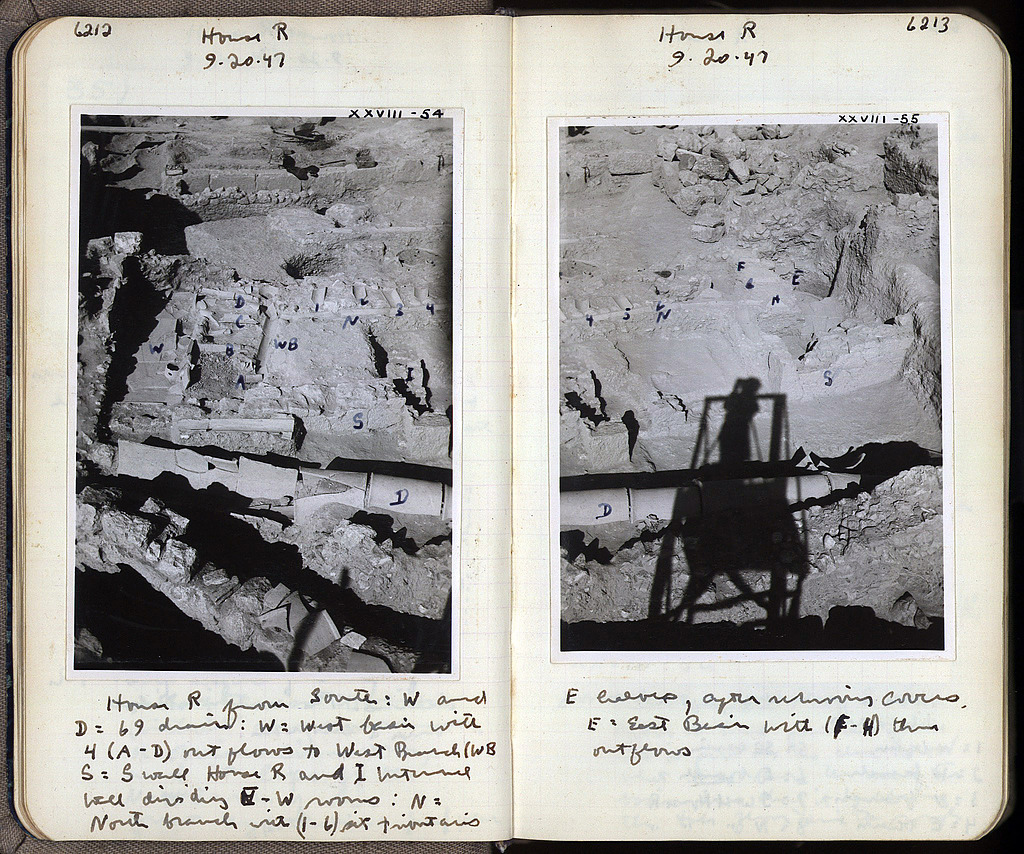 6212
House R
9.20.47
XXVIII-54
D
1
L
3
4
C
N
W
B
WB
A
I
S
D
House R from South: W and
D = 69 drains: W = West basin with
4 (A-D) outflows to West Branch (WB
S = S wall House R and I Internal
wall dividing E-W rooms: N =
North branch with (1-6) six
6213
House R
9.20.47
XXVIII-55
F
6
E
H
4
5
L
N
S
D
E, after removing covers.
E = East Basin with (F-H) three
outflows